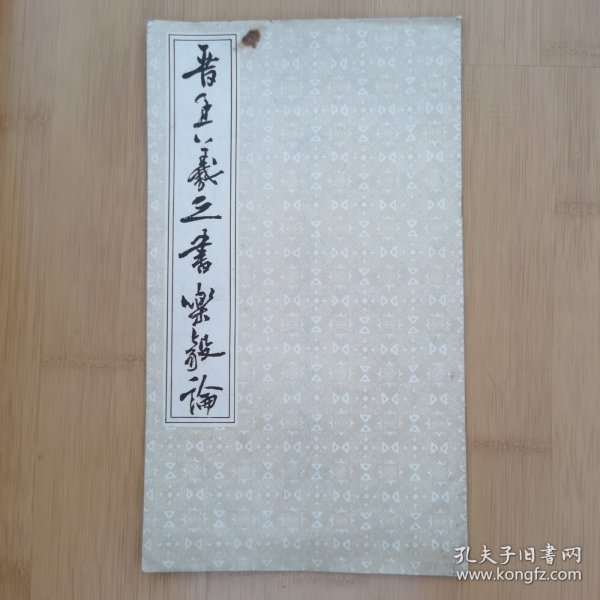 晋王羲之書樂毅論
孔夫子旧書网
www.kongfz.com